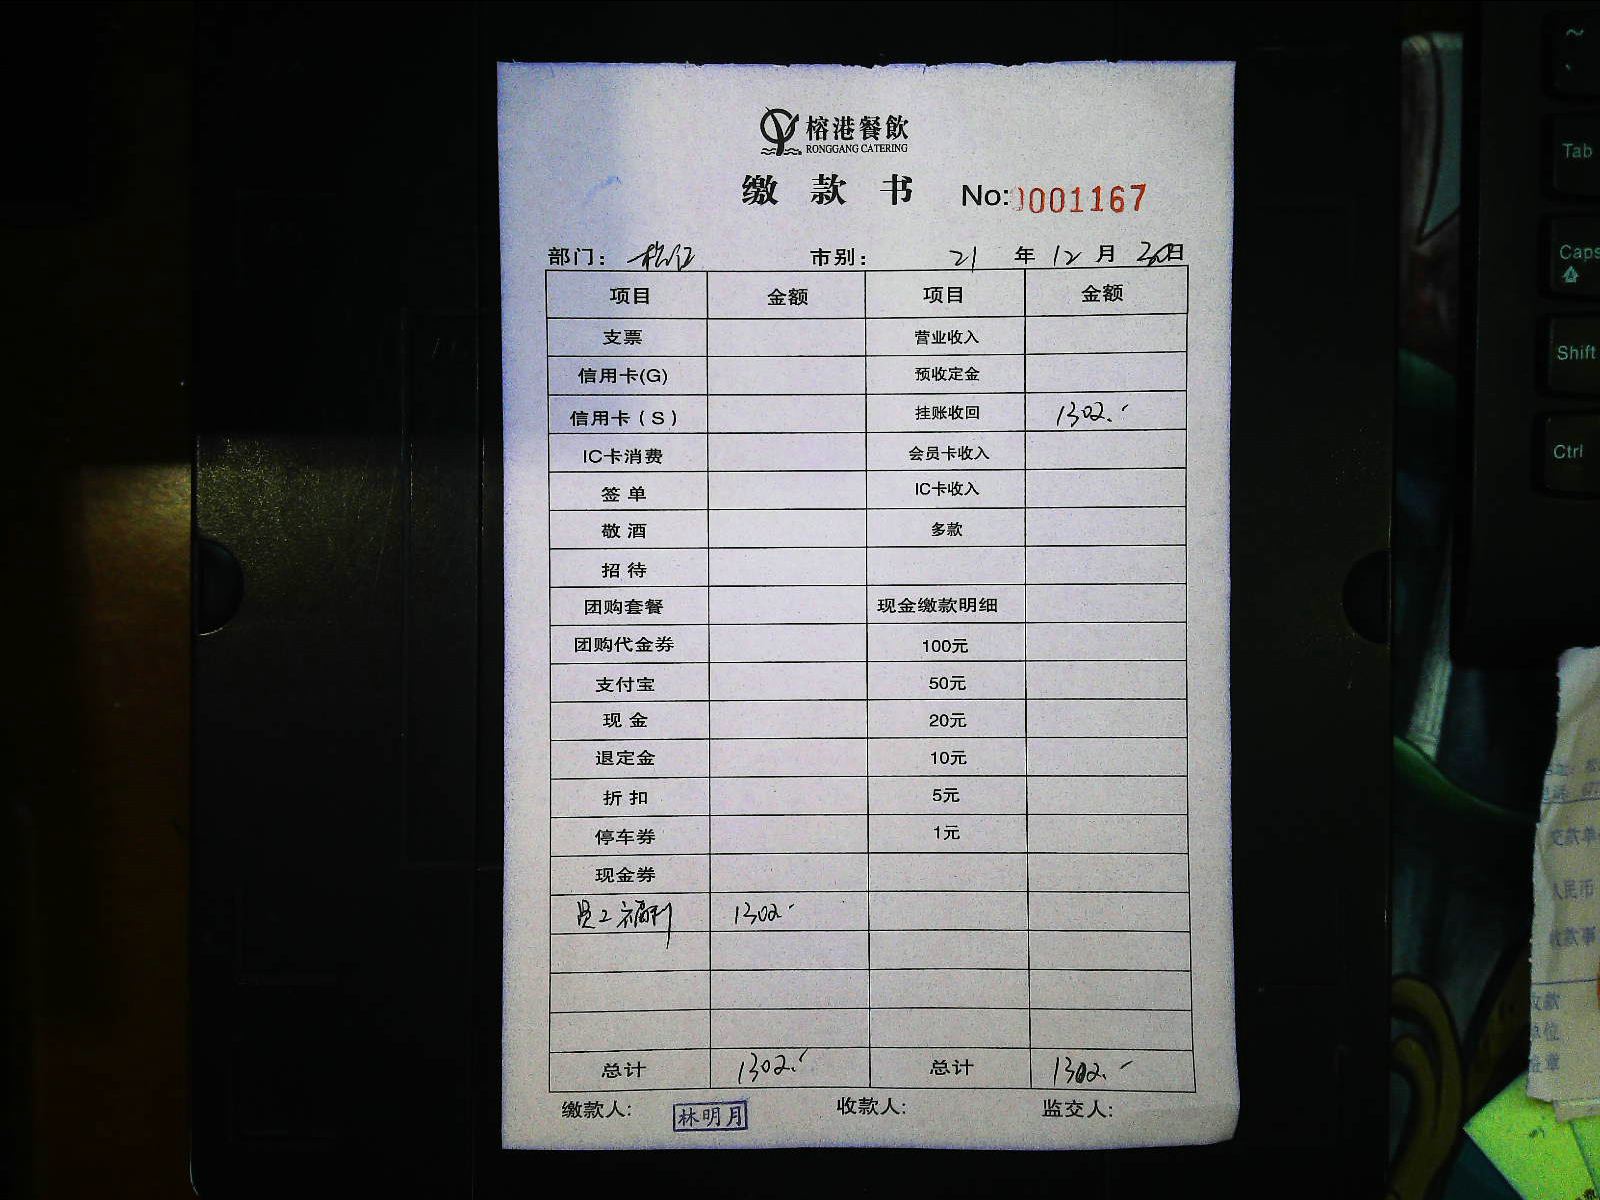 榕港餐飲
RONGGANG CATERING
缴款书 No:0001167
部门: 松江 市别: 21年12月30日
项目 金额 项目 金额
支票 营业收入
信用卡(G) 预收定金
信用卡(S) 挂账收回 1302.-
IC卡消费 会员卡收入
签单 IC卡收入
敬酒 多款
招待
团购套餐 现金缴款明细
团购代金券 100元
支付宝 50元
现金 20元
退定金 10元
折扣 5元
停车券 1元
现金券
员工福利 1302.-
总计 1302.- 总计 1302.-
缴款人: 林明月 收款人: 监交人:
~
Tab
Caps
Shift
Ctrl
人民币